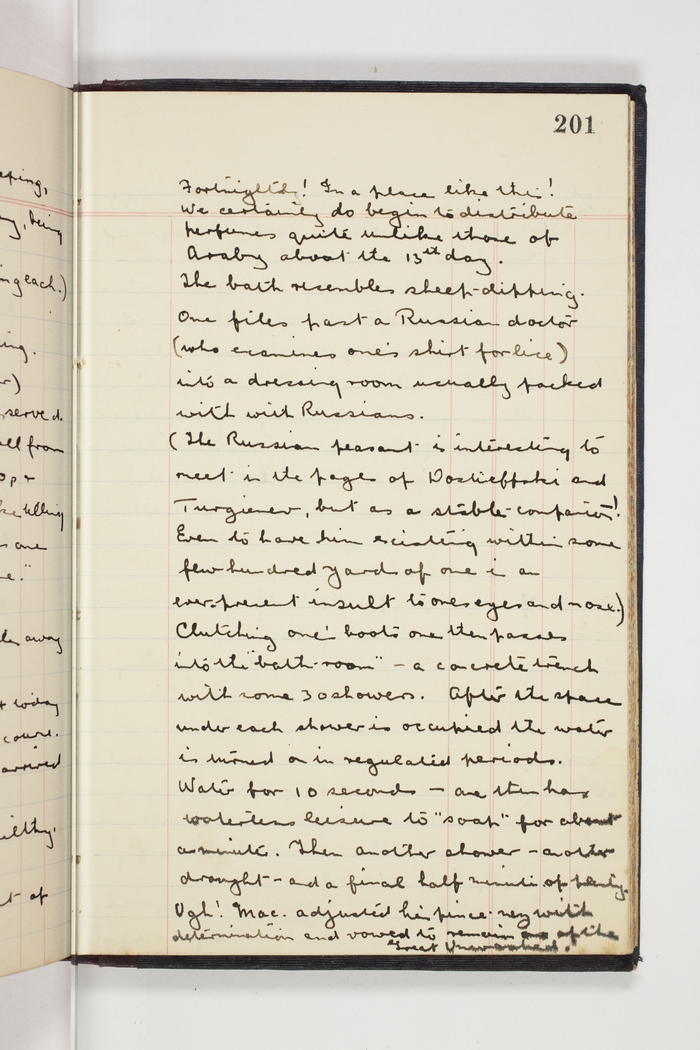 201
Fortnightly! In a place like this!
We certainly do begin to distribute
perfumes quite unlike those of
Araby about the 13th day.
The bath resembles sheep-dipping.
One files past a Russian doctor
(who examines one's shirt for lice)
into a dressing room usually packed
with with Russians.
(The Russian peasant is interesting to
meet in the pages of Dostieffski and
Turgienev, but as a stable-companion!
Even to have him existing within some
few hundred yards of one is an
ever-present insult to ones eyes and nose.)
Clutching one's boots one then passes
into the "bath-room" – a concrete trench
with some 30 showers. After the space
under each shower is occupied the water
is turned on in regulated periods.
Water for 10 seconds – one then has
waterless leisure to "soap" for about
a minute. Then another shower – another
drought – and a final half minute of plenty.
Ugh! Mac. adjusted his pince-nez with
determination and vowed to remain one of the
Great Unwashed.
eping,
ing each.)
ing.
served.
all from
op +
ke killing
s one
e."
les away
t today
course.
arrived
ilthy.
t of